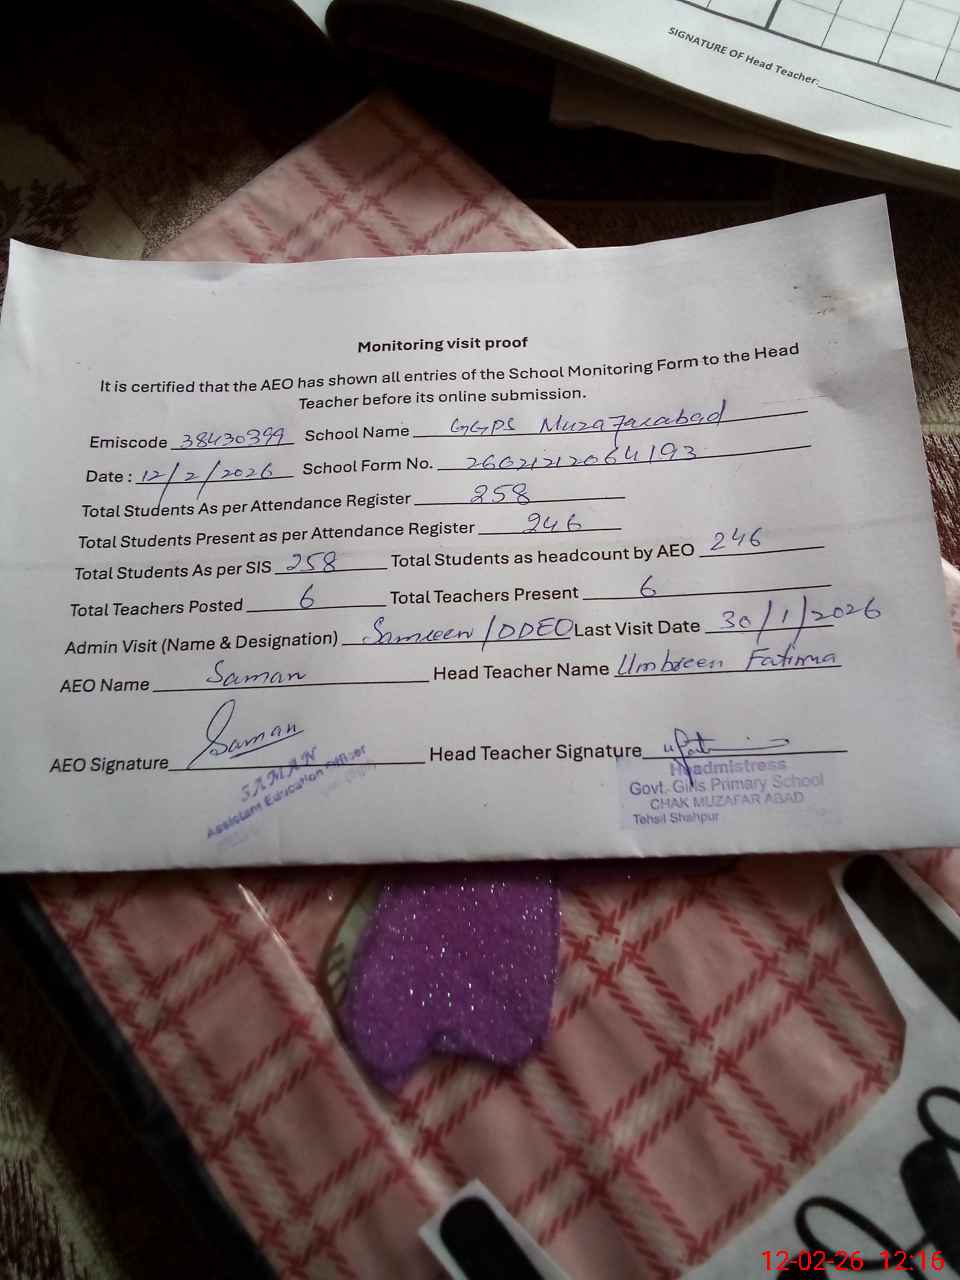 SIGNATURE OF Head Teacher:
Monitoring visit proof
It is certified that the AEO has shown all entries of the School Monitoring Form to the Head
Teacher before its online submission.
Emiscode 38430399 School Name GGPS Muzafarabad
Date : 12/2/2026 School Form No. 26021212064193
Total Students As per Attendance Register 258
Total Students Present as per Attendance Register 246
Total Students As per SIS 258 Total Students as headcount by AEO 246
Total Teachers Posted 6 Total Teachers Present 6
Admin Visit (Name & Designation) Samreen/DDEO Last Visit Date 30/1/2026
AEO Name Saman Head Teacher Name Umbreen Fatima
AEO Signature Saman Head Teacher Signature
SAMAN
Assistant Education Officer
Headmistress
Govt. Girls Primary School
CHAK MUZAFAR ABAD
Tehsil Shahpur
12-02-26 12:16